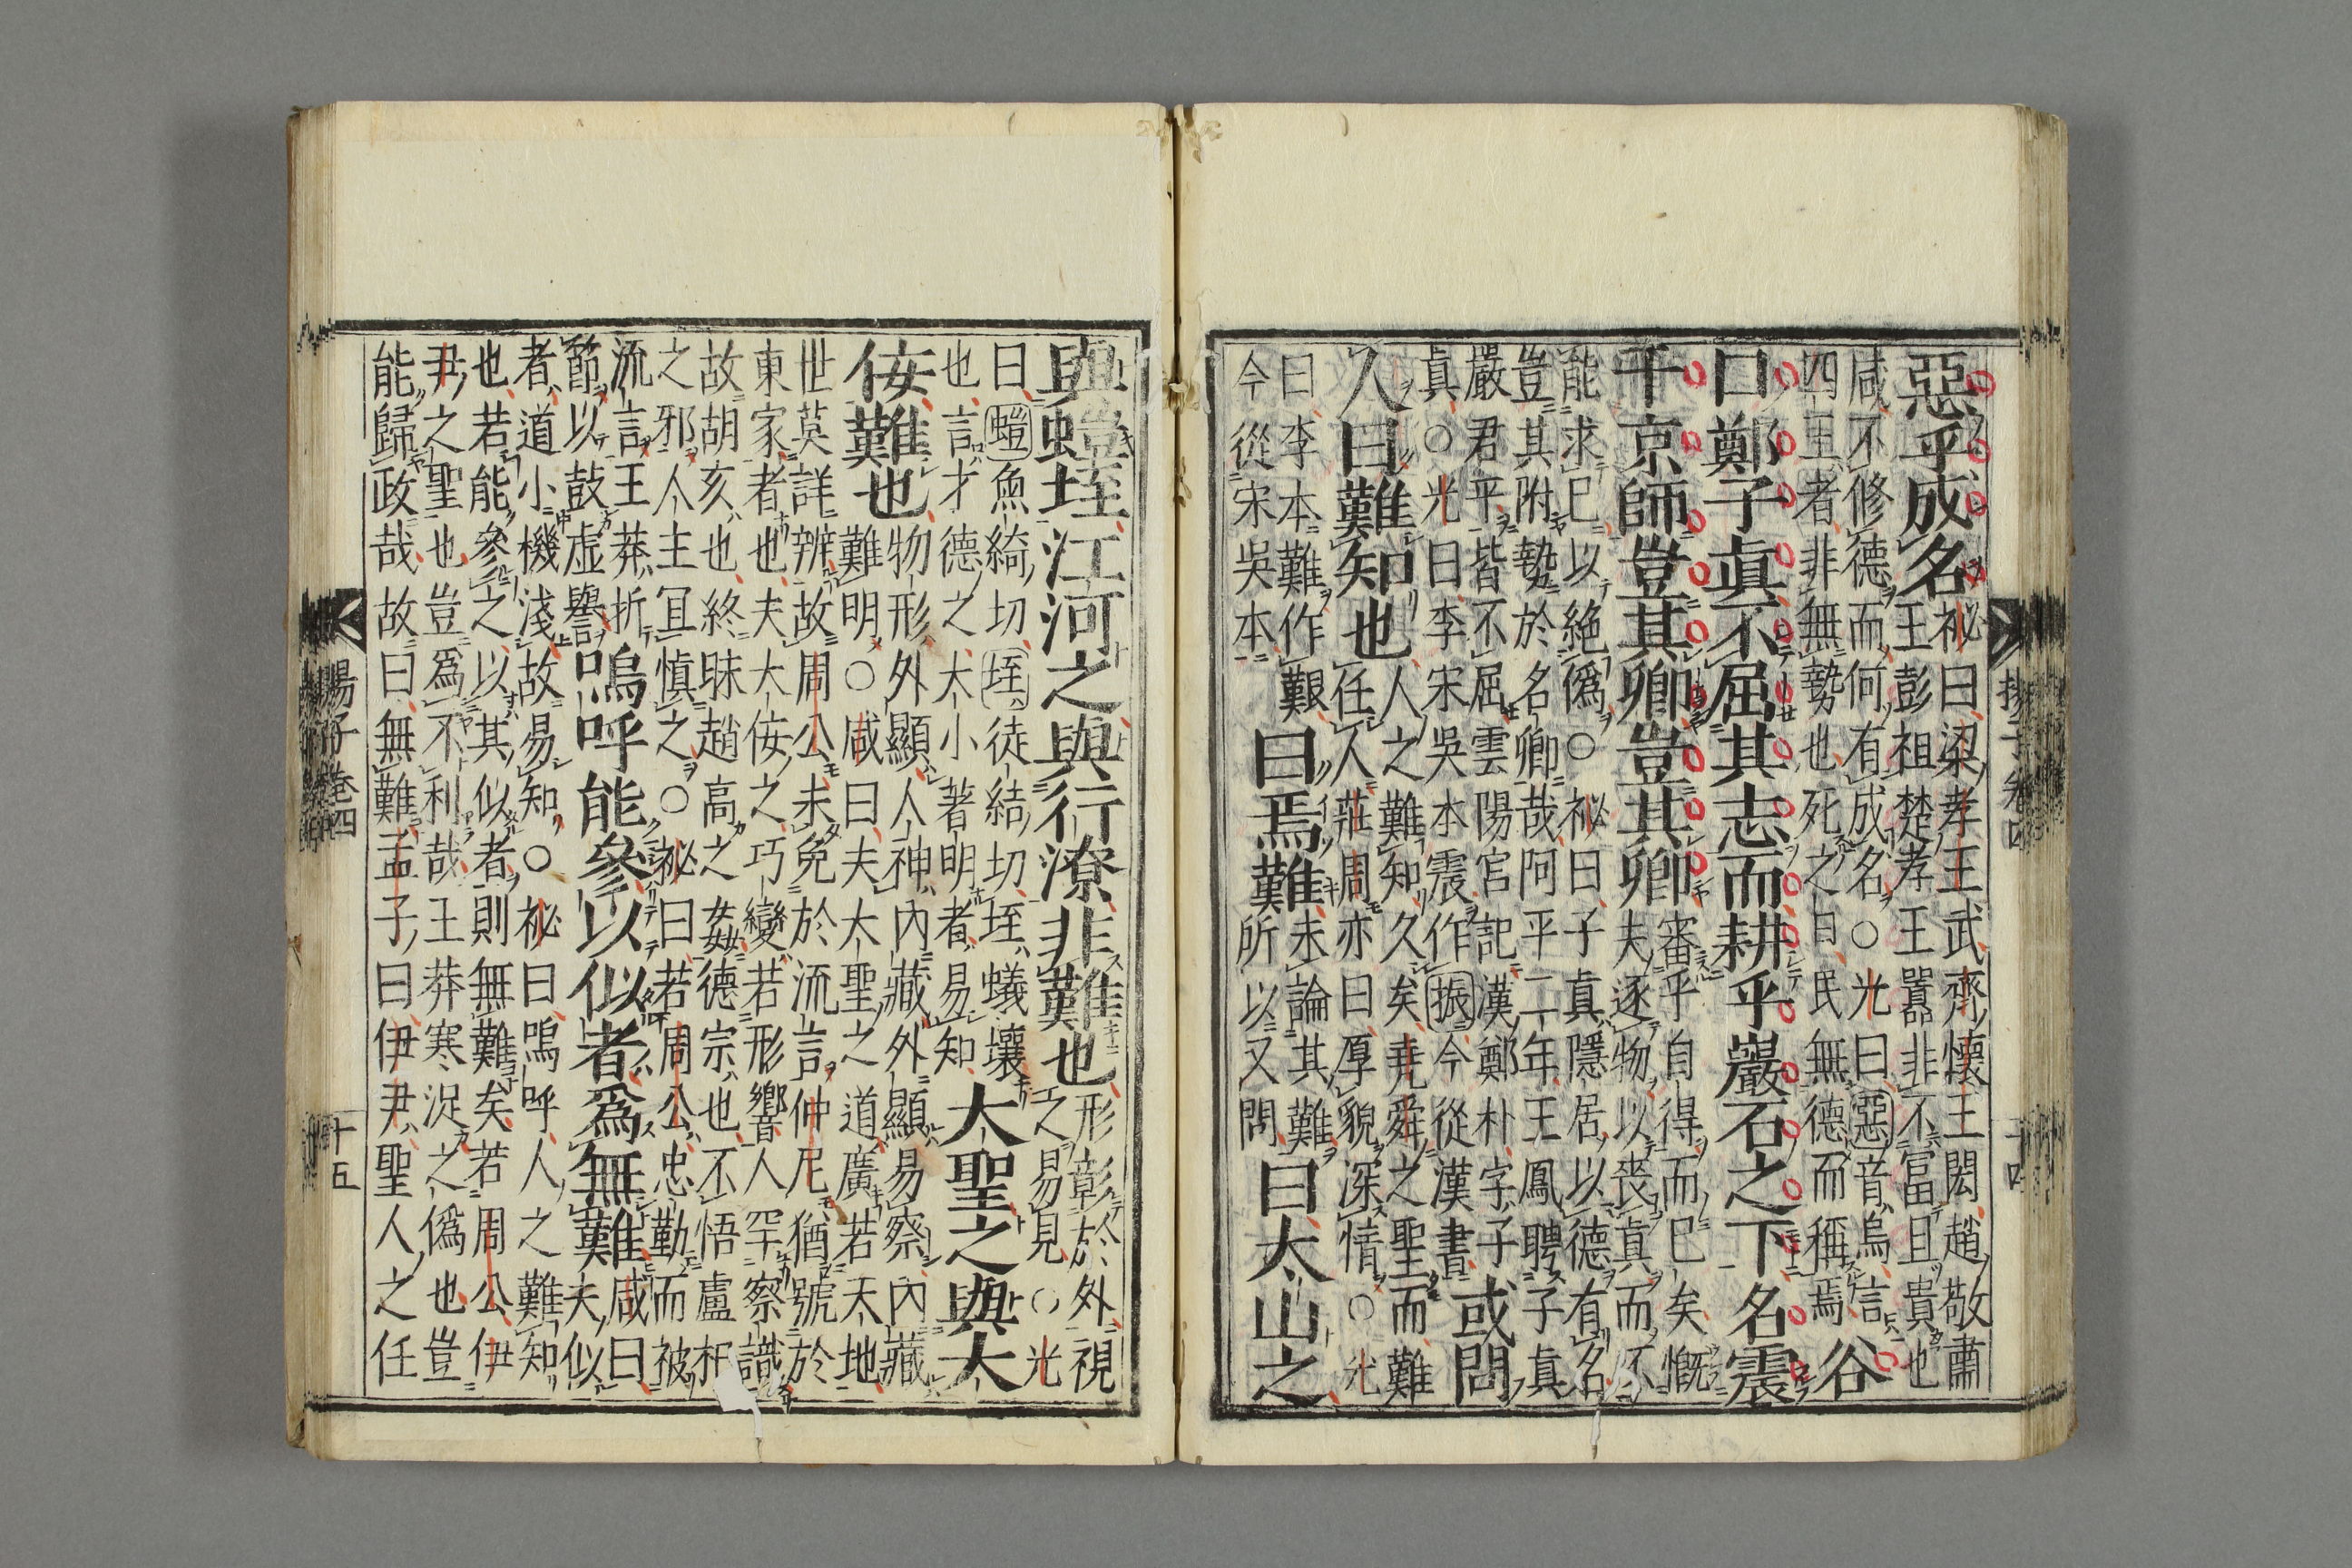 惡乎成名
祕曰梁孝王武齊懷王閎趙敬肅
王彭祖楚孝王囂非不富且貴也
咸不修德而何有成名○光曰惡音烏信
四王者非無勢也死之日民無德而稱焉
谷
口鄭子眞不屈其志而耕乎巖石之下名震
于京師豈其卿豈其卿
審乎自得而已矣慨
夫逐物以喪眞而不
能求已以絶僞○祕曰子眞隱居以德有名
豈其附勢於名卿哉阿平二年王鳳聘子眞
嚴君平皆不屈雲陽官記漢鄭朴字子
眞○光曰李宋吳本震作振今從漢書
或問
人曰難知也
人之難知久矣堯舜之聖而難
任人莊周亦曰厚貌深情○光
曰李本難作艱
今從宋吳本
曰焉難
未論其難
所以又問
曰太山之
與螘垤江河之與行潦非難也
形彰於外視
之易見○光
曰螘魚綺切垤徒結切垤蟻壤
也言才德之大小著明者易知
大聖之與大
佞難也
物形外顯人神内藏外顯易察内藏
難明○咸曰夫大聖之道廣若天地
世莫詳辨故周公未免於流言仲尼猶號於
東家者也夫大佞之巧變若形響人罕察識
故胡亥也終昧趙高之姦德宗也不悟盧杞
之邪人主冝慎之○祕曰若周公忠勤而被
流言王莽折
節以鼓虛譽
嗚呼能參以似者爲無難
咸曰
夫似
者道小機淺故易知○祕曰嗚呼人之難知
也若能參之以其似者則無難矣若周公伊
尹之聖也豈爲不利哉王莽寒浞之僞也豈
能歸政哉故曰無難孟子曰伊尹聖人之任
揚子卷四
十五